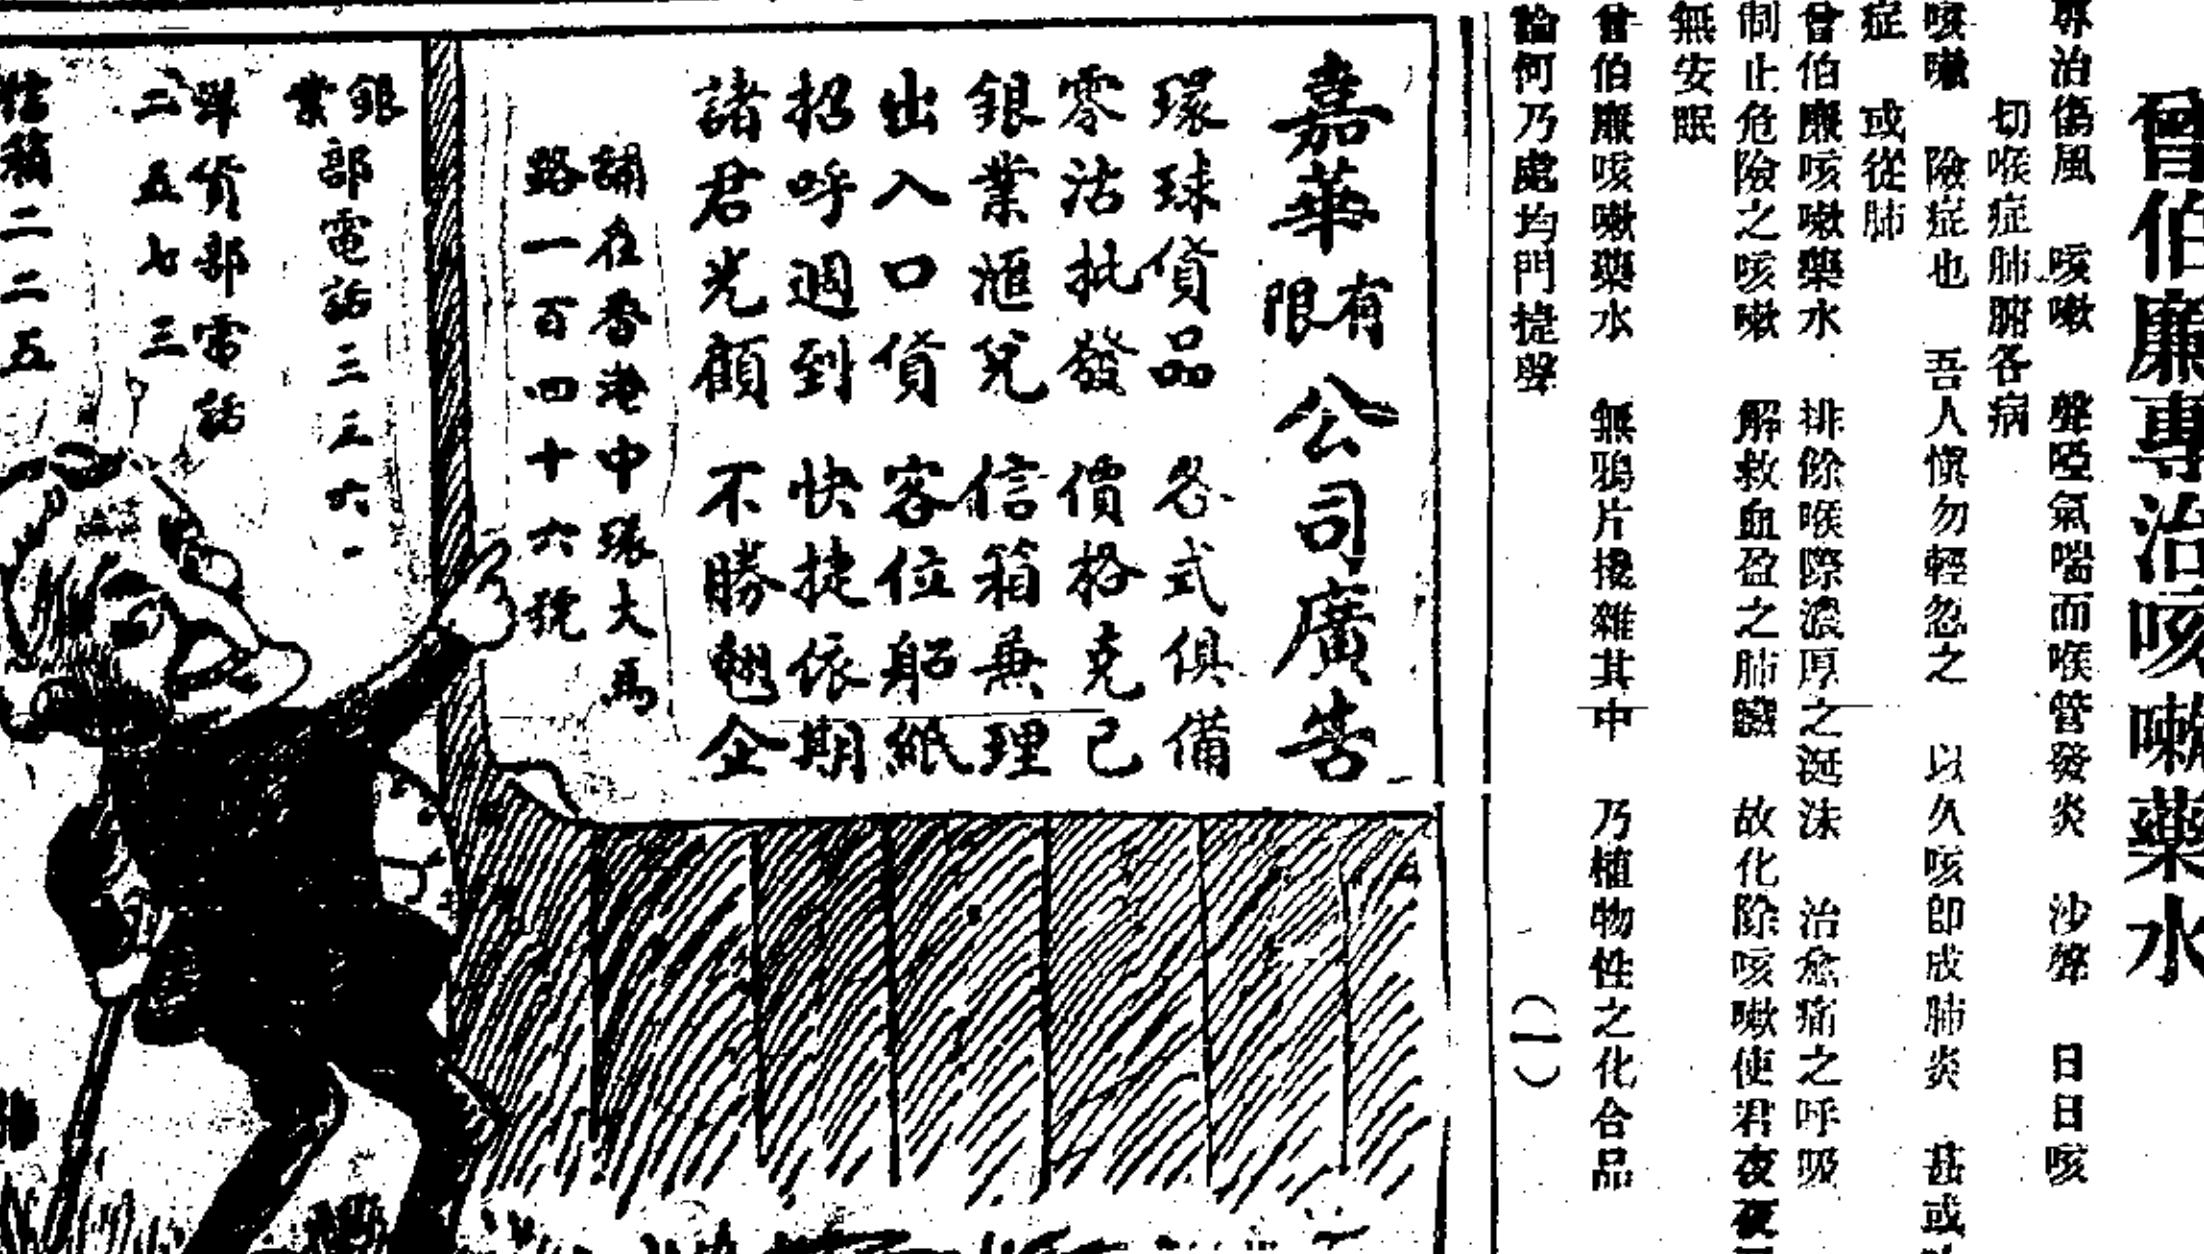 曾伯廉專治咳嗽藥水
專治傷風 咳嗽 聲啞氣喘而喉管發炎 沙聲 日日咳
切喉症肺腑各病
咳嗽 險症也 吾人慎勿輕忽之 以久咳即成肺炎 甚或
症 或從肺
曾伯廉咳嗽藥水 排除喉際濃厚之涎沫 治愈痛之呼吸
制止危險之咳嗽 解救血盈之肺臟 故化除咳嗽使君夜夜
無安眠
曾伯廉咳嗽藥水 無鴉片攙雜其中 乃植物性之化合品
論何乃處均門捷聲 (一)
嘉華有限公司廣告
環球貨品 各式俱備
零沽批發 價格克己
銀業滙兌 信箱兼理
出入口貨 客位船紙
招呼週到 快捷依期
諸君光顧 不勝翹企
舖在香港中環大馬
路一百四十六號
銀業部電話三三六一
洋貨部電話
二五七三
信箱二二五